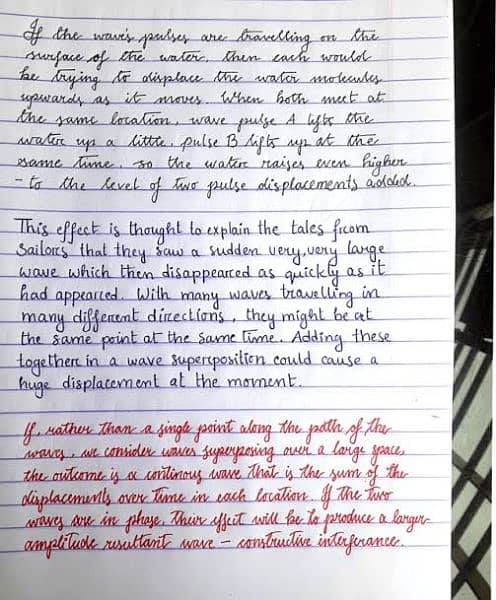 If the wave's pulses are travelling on the
surface of the water, then each would
be trying to displace the water molecules
upwards as it moves. When both meet at
the same location, wave pulse A lifts the
water up a little, pulse B lifts up at the
same time, so the water raises even higher
- to the level of two pulse displacements added.
This effect is thought to explain the tales from
Sailors that they saw a sudden very, very large
wave which then disappeared as quickly as it
had appeared. With many waves travelling in
many different directions, they might be at
the same point at the same time. Adding these
together in a wave superposition could cause a
huge displacement at the moment.
If, rather than a single point along the path of the
waves, we consider waves superposing over a large space,
the outcome is a continous wave that is the sum of the
displacements over time in each location. If the two
waves are in phase, their effect will be to produce a larger
amplitude resultant wave – constructive interferance.